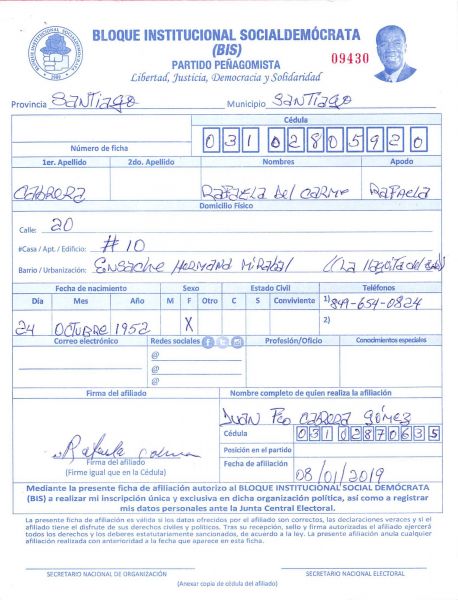 BLOQUE INSTITUCIONAL SOCIALDEMÓCRATA
(BIS)
PARTIDO PEÑAGOMISTA
Libertad, Justicia, Democracia y Solidaridad
09430
Provincia Santiago Municipio Santiago
Cédula
Número de ficha 031 0280592 0
1er. Apellido 2do. Apellido Nombres Apodo
Cabrera Rafaela Del Carme Rafaela
Domicilio Físico
Calle: 20
#Casa / Apt. / Edificio: #10
Barrio / Urbanización: Ensache Hermana Mirabal (La
Fecha de nacimiento Sexo Estado Civil Teléfonos
Día Mes Año M F Otro C S Conviviente 1) 849-654-0824
24 Octubre 1952 X 2)
Correo electrónico Redes sociales Profesión/Oficio Conocimientos especiales
@
@
@
Firma del afiliado Nombre completo de quien realiza la afiliación
Juan Fco Cabrera Gómez
Cédula 031 0287063 5
Rafaela
Posición en el partido
Firma del afiliado
(Firme igual que en la Cédula)
Fecha de afiliación 08/01/2019
Mediante la presente ficha de afiliación autorizo al BLOQUE INSTITUCIONAL SOCIAL DEMÓCRATA
(BIS) a realizar mi inscripción única y exclusiva en dicha organización política, así como a registrar
mis datos personales ante la Junta Central Electoral.
La presente ficha de afiliación es válida si los datos ofrecidos por el afiliado son correctos, las declaraciones veraces y si el
afiliado tiene el disfrute de sus derechos civiles y políticos. Tras su recepción, sello y firma autorizados el afiliado ejercerá
todos los derechos y los deberes estatutariamente sancionados, de acuerdo a la ley. La presente afiliación anula cualquier
afiliación realizada con anterioridad a la fecha que aparece en esta ficha.
SECRETARIO NACIONAL DE ORGANIZACIÓN SECRETARIO NACIONAL ELECTORAL
(Anexar copia de cédula del afiliado)